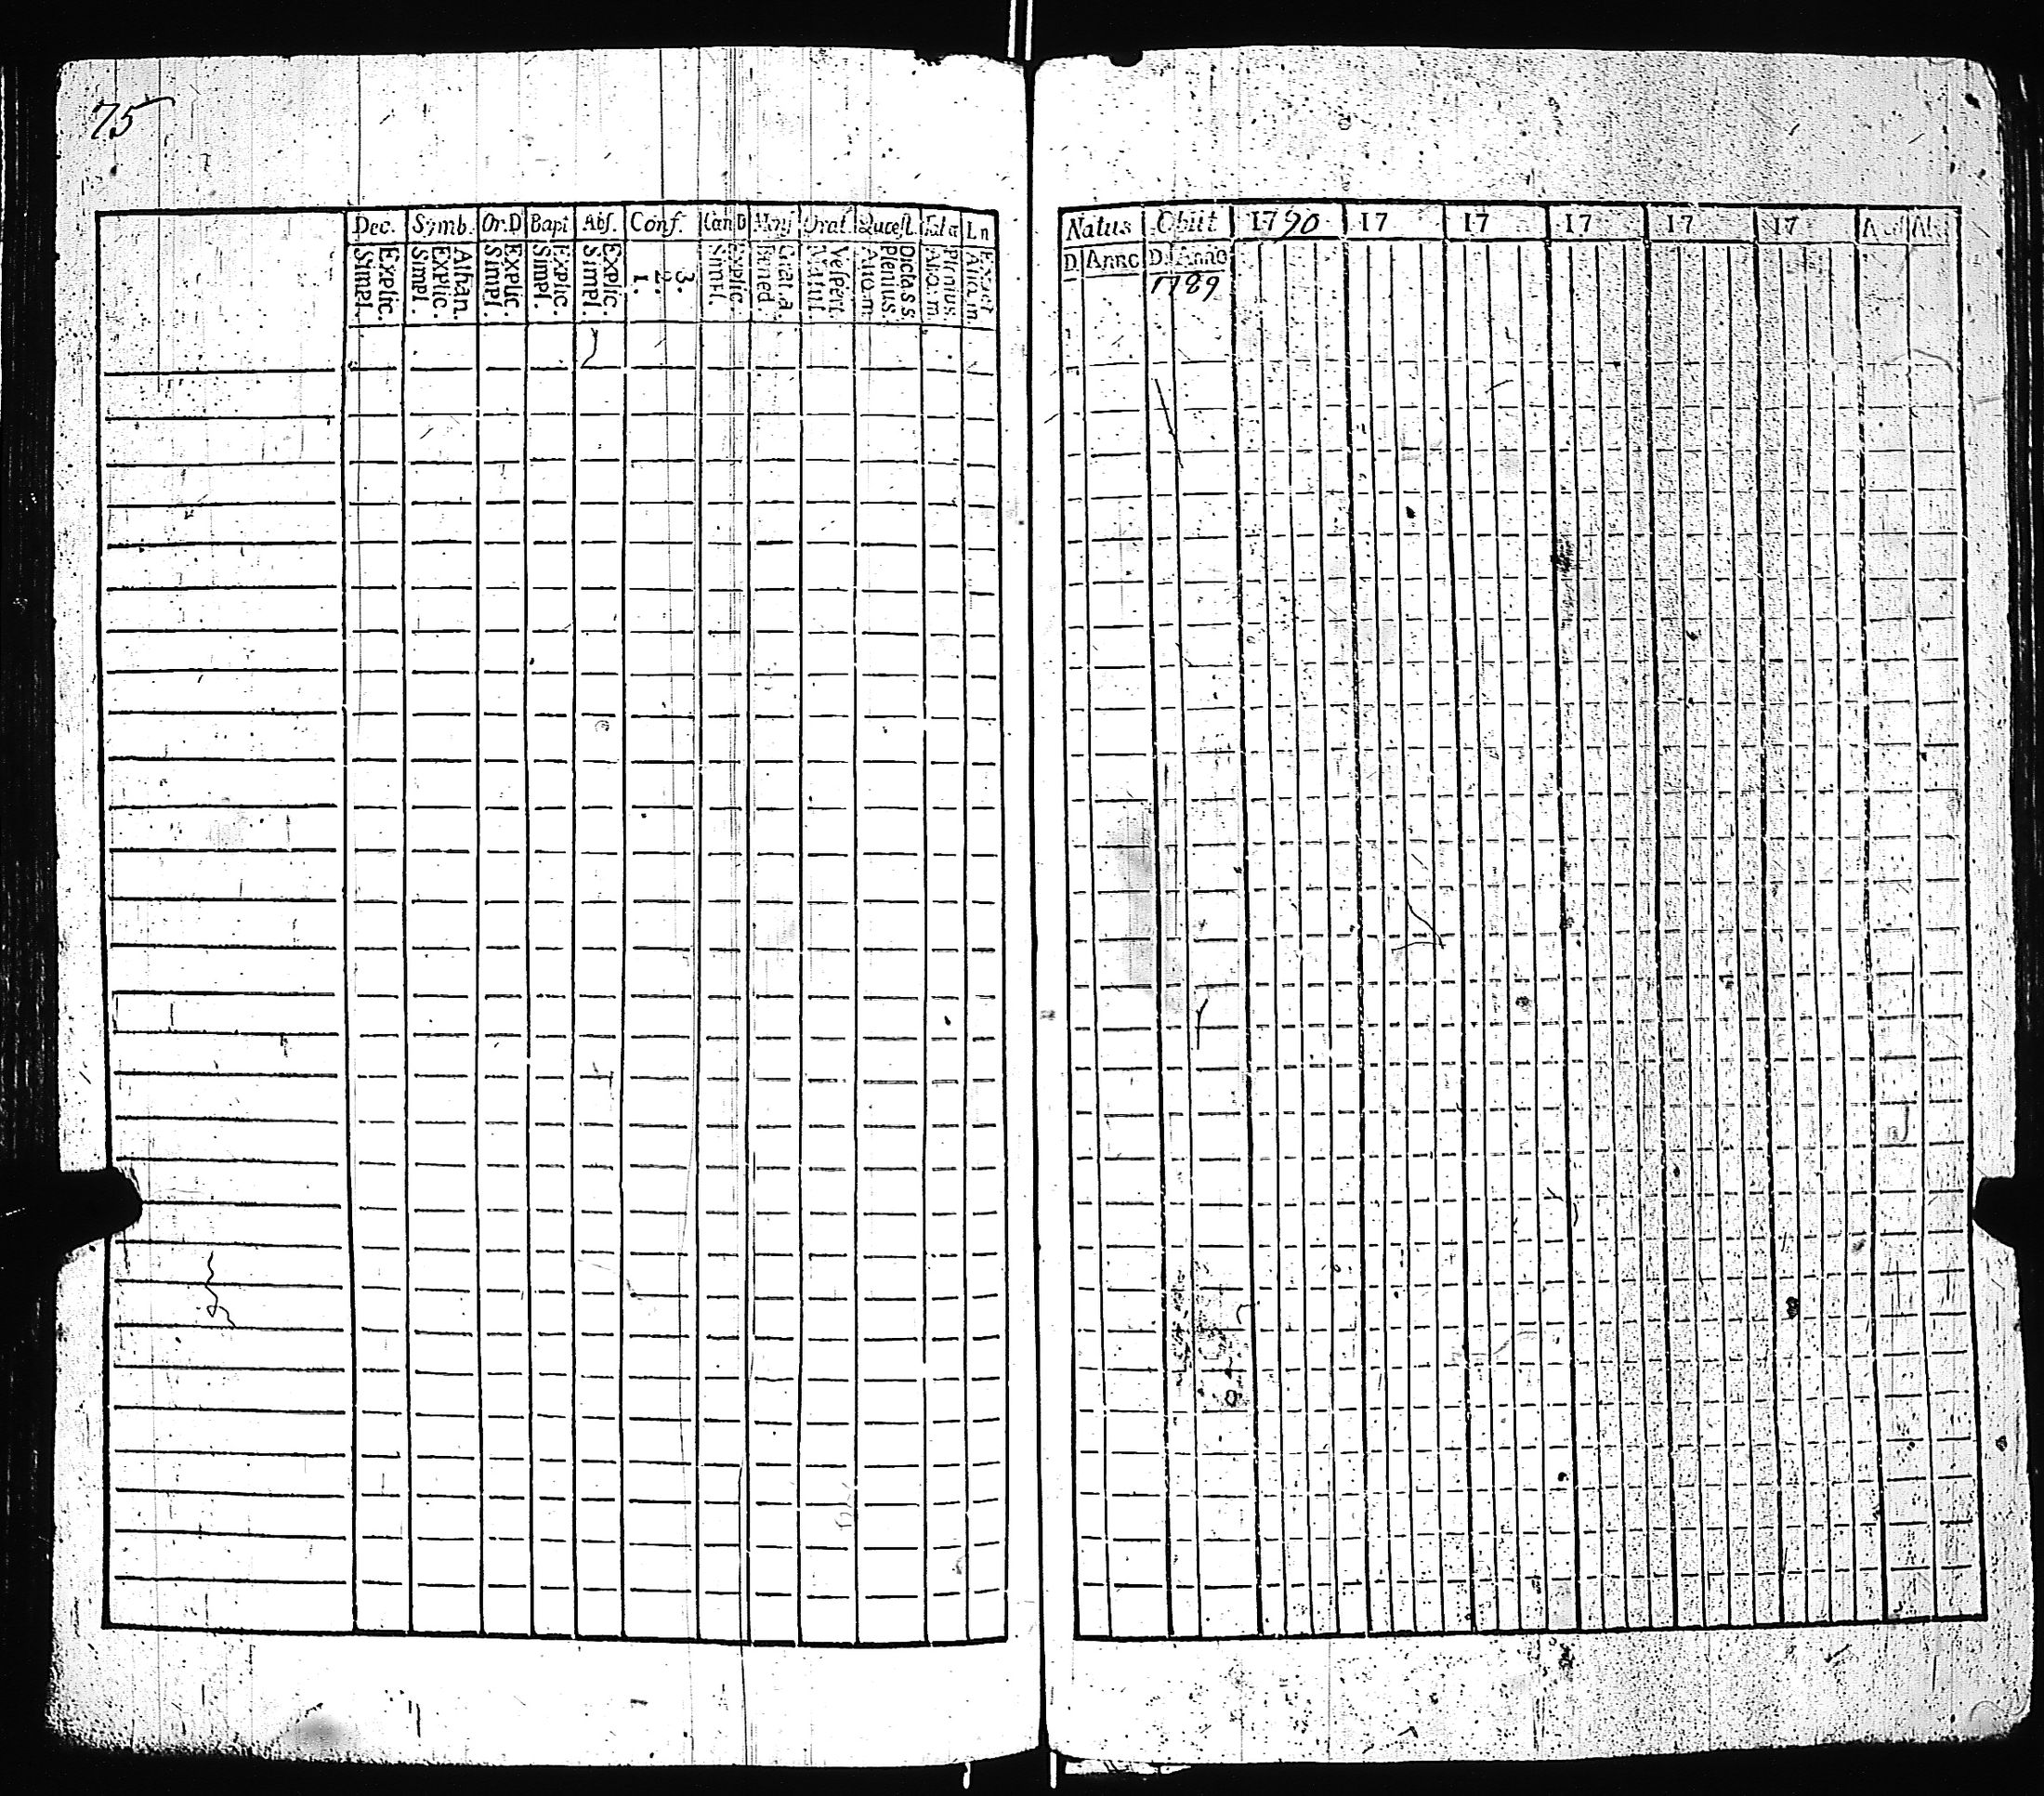 75
Dec. Symb. Or.D Bapt Abs. Conf. Can D Mens Orat. Quæst. Tab.œ Ln
Explic. Simpl. Athan. Explic. Simpl. Explic. Simpl. Explic. Simpl. Explic. Simpl. 3. 2. 1. Explic. Simpl. Grat.a. Bened. Vespert. Matut. Dictass. Plenius. Aliq.m. Plenius. Aliq.m. Aliq.m.
Natus Obiit 1790 17 17 17 17 17
D Anno D. Anno
1789